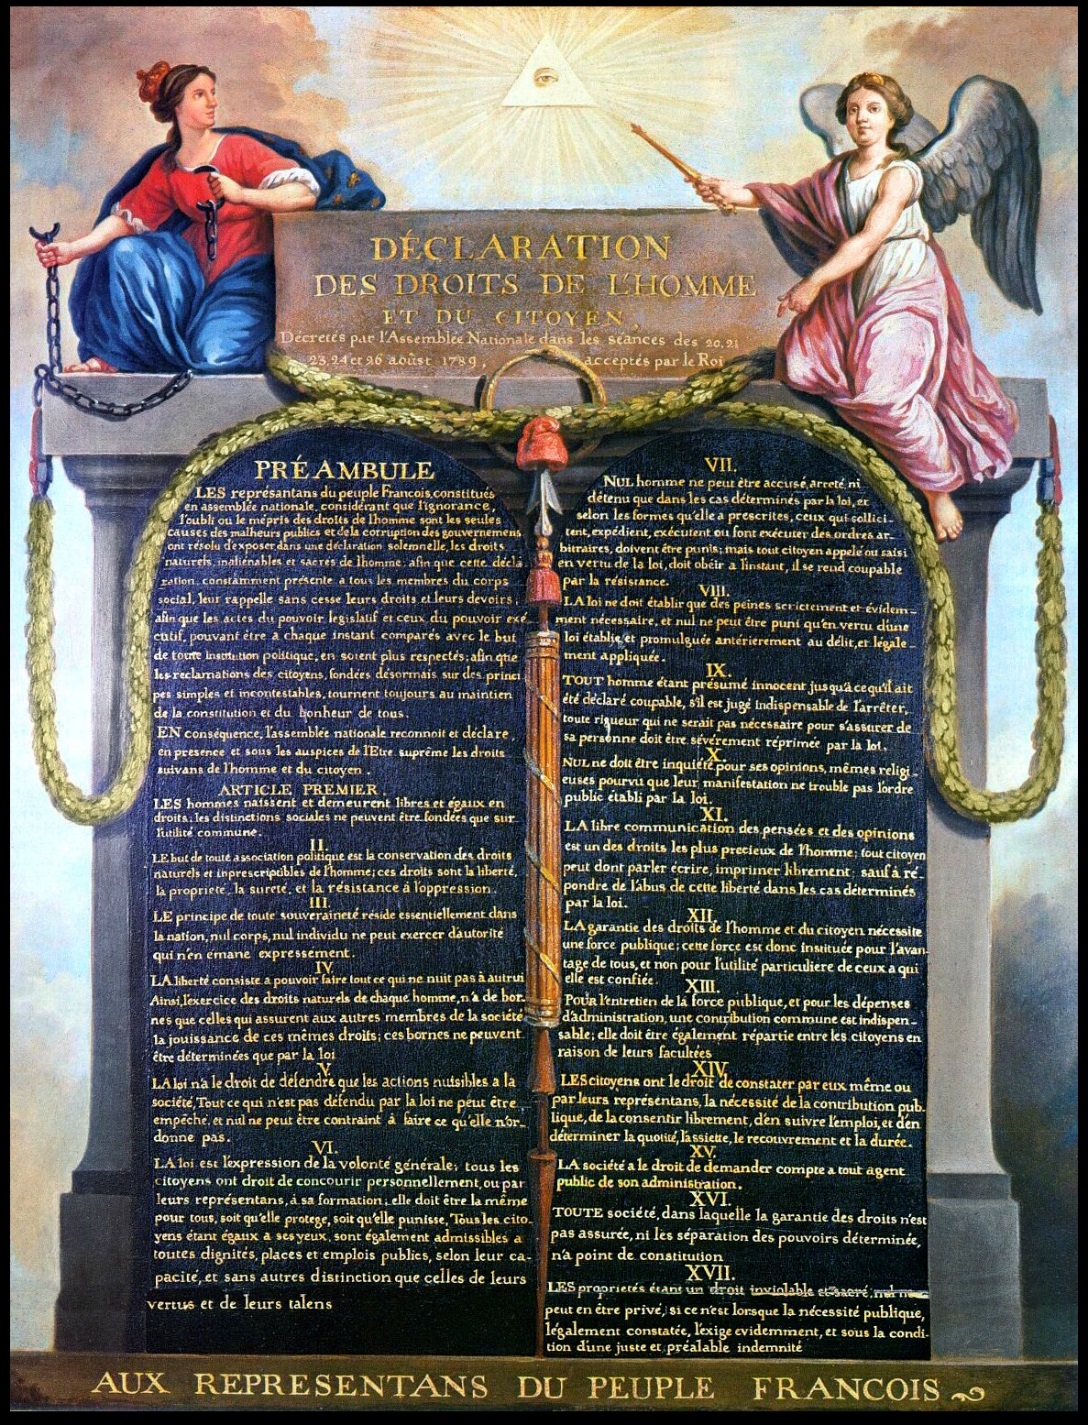 DÉCLARATION
DES DROITS DE L'HOMME
ET DU CITOYEN,
Décretés par l'Assemblée Nationale dans les séances des 20, 21
23, 24 et 26 aoûst 1789, acceptés par le Roi
PRÉAMBULE
LES représantans du peuple Francois, constitués
en assemblée nationale, considérant que l'ignorance,
l'oubli ou le mépris des droits de l'homme sont les seules
causes des malheurs publics et de la corruption des gouvernemens
ont résolu d'exposer dans une déclaration solemnelle, les droits
naturels, inaliénables et sacrés de l'homme; afin que cette décla
ration, constamment présente a tous les membres du corps
social, leur rappelle sans cesse leurs droits et leurs devoirs;
afin que les actes du pouvoir legislatif et ceux du pouvoir exé
cutif, pouvant être a chaque instant comparés avec le but
de toute institution politique, en soient plus respectés; afin que
les reclamations des citoyens, fondées désormais sur des princi
pes simples et incontestables, tournent toujours au maintien
de la constitution et du bonheur de tous.
EN conséquence, l'assemblée nationale reconnoit et déclare,
en presence et sous les auspices de l'Etre suprême les droits
suivans de l'homme et du citoyen.
ARTICLE PREMIER.
LES hommes naissent et demeurent libres et égaux en
droits; les distinctions sociales ne peuvent être fondées que sur
l'utilité commune.
II.
LE but de toute association politique est la conservation des droits
naturels et inprescriptibles de l'homme; ces droits sont la liberté,
la propriete, la sureté, et la résistance à l'oppression.
III.
LE principe de toute souveraineté réside essentiellement dans
la nation, nul corps, nul individu ne peut exercer d'autorité
qui n'en émane expressement.
IV.
LA liberté consiste a pouvoir faire tout ce qui ne nuit pas à autrui
Ainsi, l'exercice des droits naturels de chaque homme, n'a de bor-
nes que celles qui assurent aux autres membres de la société
la jouissance de ces mêmes droits; ces bornes ne peuvent
être déterminées que par la loi
V.
LA loi n'a le droit de défendre que les actions nuisibles a la
société. Tout ce qui n'est pas défendu par la loi ne peut être
empêché, et nul ne peut être contraint à faire ce qu'elle n'or-
donne pas.
VI.
LA loi est l'expression de la volonté générale; tous les
citoyens ont droit de concourir personnellement, ou par
leurs représentans, à sa formation; elle doit être la même
pour tous, soit qu'elle protege, soit qu'elle punisse, Tous les cito-
yens étant égaux à ses yeux, sont également admissibles a
toutes dignités, places et emplois publics, selon leur ca-
pacité, et sans autres distinction que celles de leurs
vertus et de leurs talens
VII.
NUL homme ne peut être accusé, arreté, ni
détenu que dans les cas déterminés par la loi, et
selon les formes qu'elle a prescrites, ceux qui sollici-
tent, expédient, exécutent ou font exécuter des ordres ar-
bitraires, doivent être punis; mais tout citoyen appelé ou saisi
en vertu de la loi, doit obéir a l'instant, il se rend coupable
par la résistance.
VIII.
LA loi ne doit établir que des peines strictement et évidem-
ment nécessaire, et nul ne peut être puni qu'en vertu d'une
loi établie, et promulguée antérierement au délit, et légale-
ment appliquée.
IX.
TOUT homme étant présumé innocent jusqu'a ce qu'il ait
été déclaré coupable, s'il est jugé indispensable de l'arrêter,
toute rigueur qui ne serait pas nécessaire pour s'assurer de
sa personne doit être sévérement réprimée par la loi.
X.
NUL ne doit être inquiété pour ses opinions, mêmes religi-
euses pourvu que leur manifestation ne trouble pas l'ordre
public établi par la loi.
XI.
LA libre communication des pensées et des opinions
est un des droits les plus precieux de l'homme; tout citoyen
peut dont parler écrire, imprimer librement; sauf à ré-
pondre de l'abus de cette liberté dans les cas déterminés
par la loi.
XII.
LA garantie des droits de l'homme et du citoyen nécessite
une force publique; cette force est donc instituée pour l'avan-
tage de tous, et non pour l'utilité particuliere de ceux a qui
elle est confiée.
XIII.
POUR l'entretien de la force publique, et pour les dépenses
d'administration, une contribution commune est indispen-
sable; elle doit être également répartie entre les citoyens en
raison de leurs facultées
XIV.
LES citoyens ont le droit de constater par eux même ou
par leurs représentans, la nécessité de la contribution pub-
lique, de la consentir librement, d'en suivre l'emploi, et d'en
déterminer la quotité, l'assiette, le recouvrement et la durée.
XV.
LA société a le droit de demander compte a tout agent
public de son administration.
XVI.
TOUTE société, dans laquelle la garantie des droits n'est
pas assurée, ni les séparation des pouvoirs déterminée,
n'a point de constitution
XVII.
LES proprietés étant un droit inviolable et sacré, nul ne
peut en être privé, si ce n'est lorsque la nécessité publique,
légalement constatée, l'exige evidemment, et sous la condi-
tion d'une juste et préalable indemnité
AUX REPRESENTANS DU PEUPLE FRANCOIS